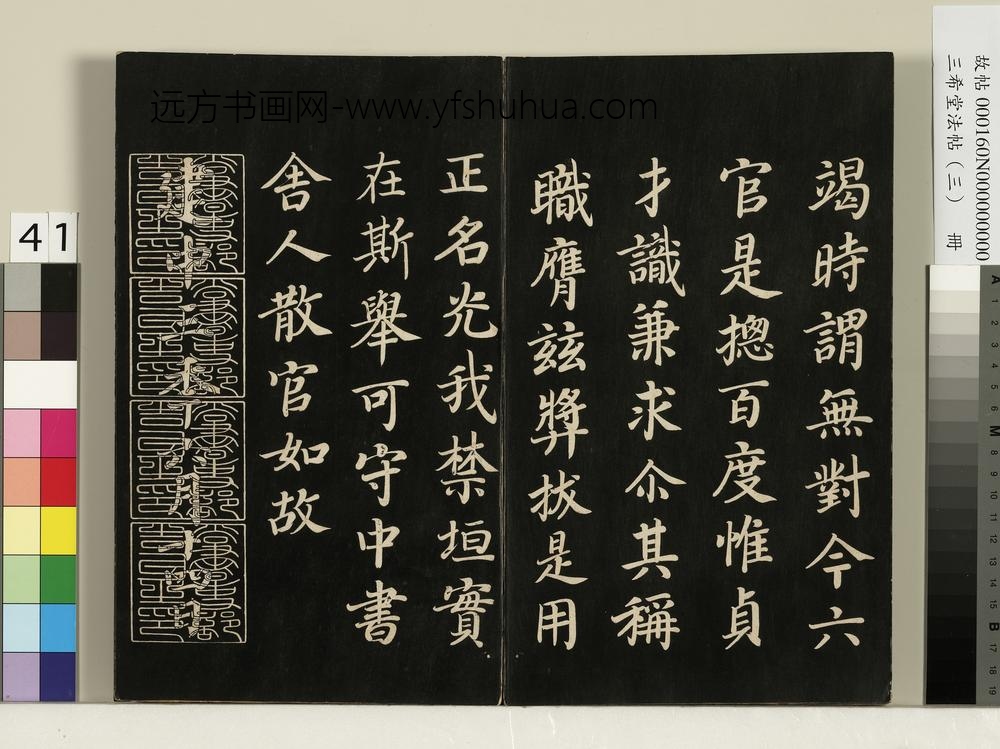 远方书画网-www.yfshuhua.com
竭時謂無對今六
官是摠百度惟貞
才識兼求尒其稱
職膺茲獎拔是用
正名光我禁垣實
在斯舉可守中書
舍人散官如故
建中三年六月十四日
故帖 000160N000000000
三希堂法帖（三） 冊
41
A 1 2 3 4 5 6 M 8 9 10 11 12 13 14 15 B 17 18 19